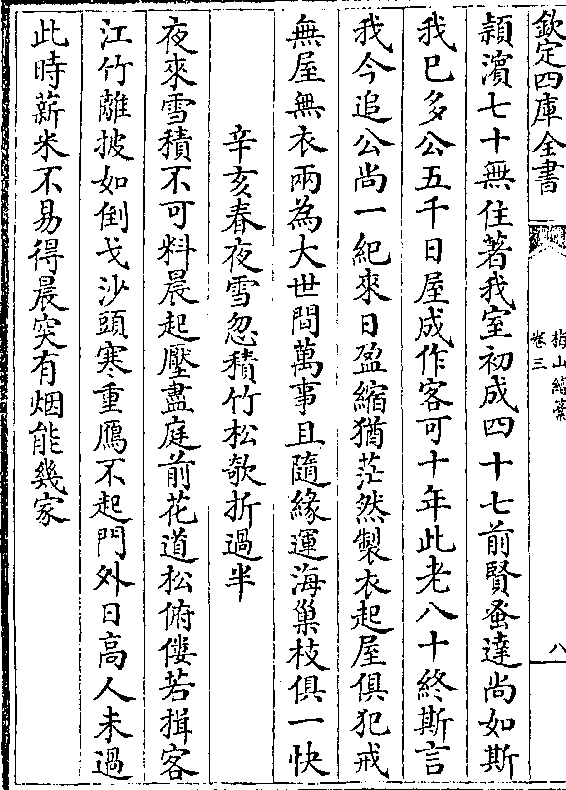 欽定四庫全書
梅山續藁
卷三
八
潁濱七十無住著我室初成四十七前賢蚤達尚如斯
我已多公五千日屋成作客可十年此老八十終斯言
我今追公尚一紀來日盈縮猶茫然製衣起屋俱犯戒
無屋無衣兩為大世間萬事且隨緣運海巢枝俱一快
辛亥春夜雪忽積竹松欹折過半
夜來雪積不可料晨起壓盡庭前花道松俯僂若揖客
江竹離披如倒戈沙頭寒重鴈不起門外日高人未過
此時薪米不易得晨突有烟能幾家